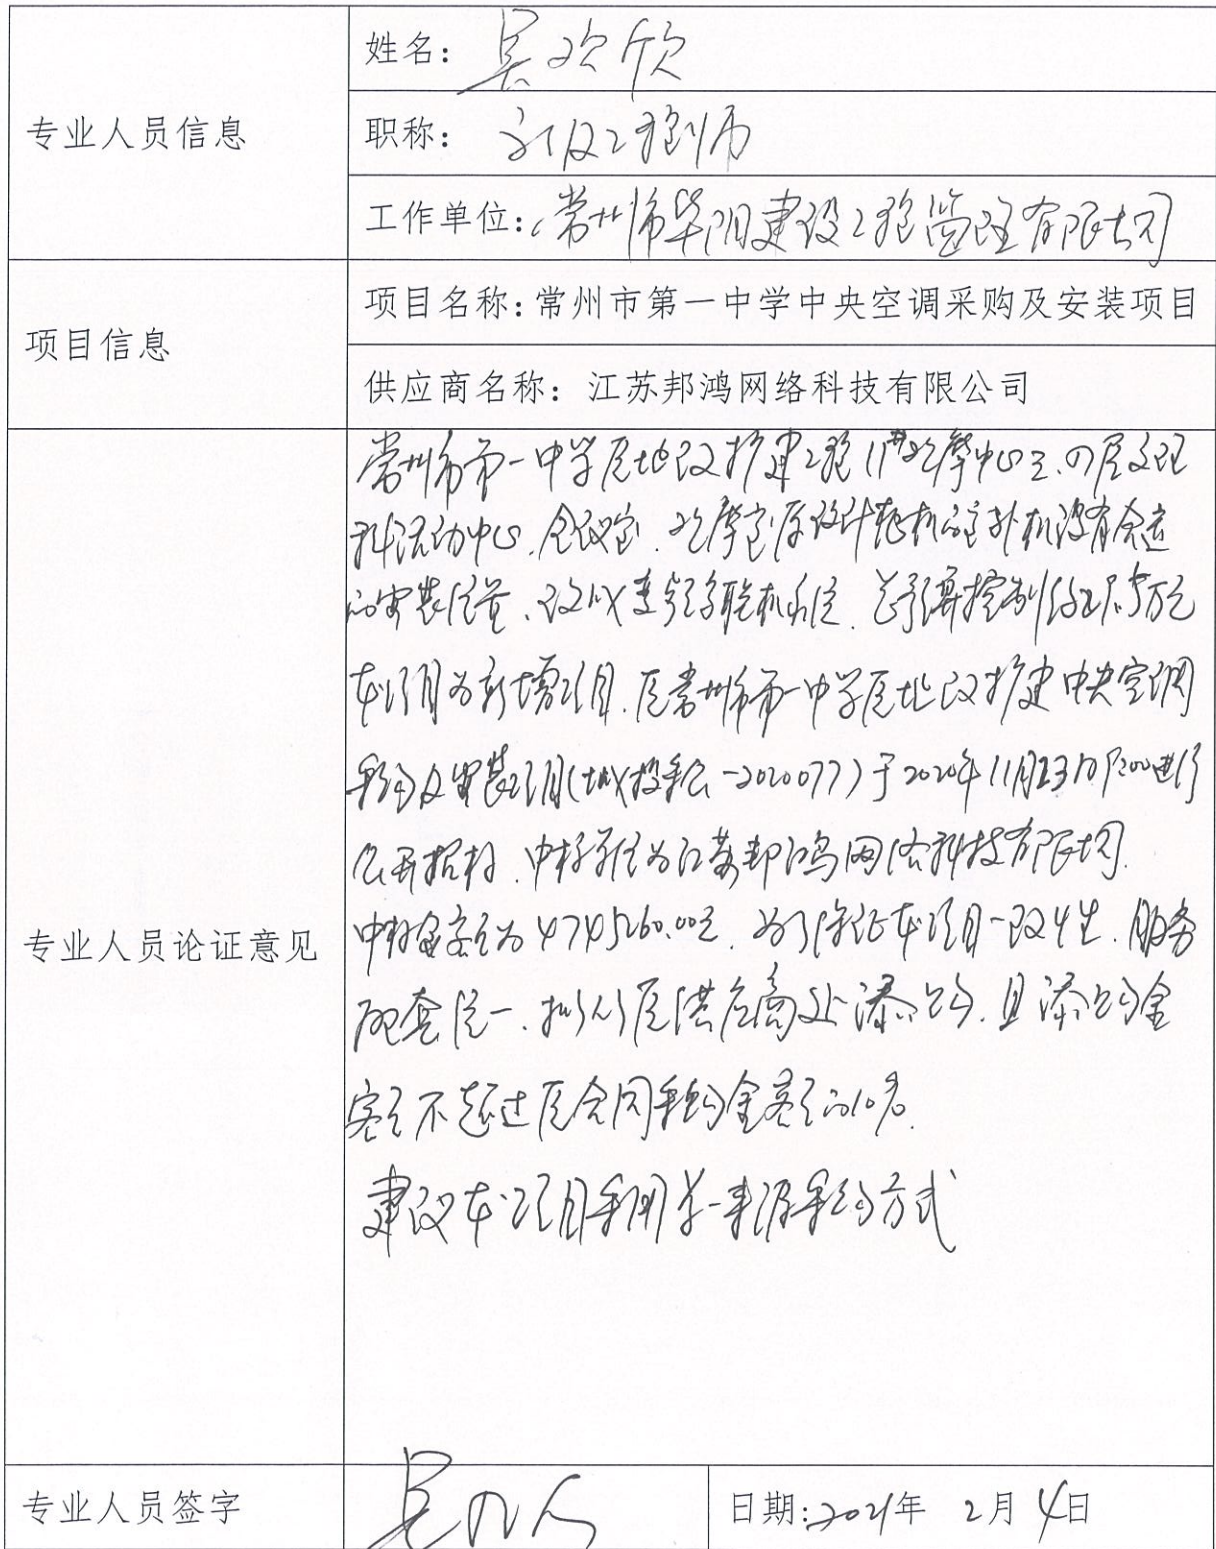 姓名：吴欢欣
专业人员信息
职称：高级工程师
工作单位：常州市华阳建设工程监理有限公司
项目信息
项目名称：常州市第一中学中央空调采购及安装项目
供应商名称：江苏邦鸿网络科技有限公司
专业人员论证意见
常州市第一中学原地改扩建工程11#观摩中心三、四层文理
科活动中心、会议室、观摩室原设计柜机的室外机没有合适
的安装位置，改成变频多联机系统，总预算控制约 万元
本项目为新增项目，原常州市第一中学原地改扩建中央空调
采购及安装项目(城投采公-2020077)于2020年11月23日 进行
公开招标，中标单位为江苏邦鸿网络科技有限公司，
中标金额为4745260.00元，为了保证本项目一致性，服务
配套统一，拟从原供应商处添购，且添购金
额不超过原合同采购金额的10%。
建议本项目采用单一来源采购方式
专业人员签字
吴欢欣
日期：2021年 2月 4日